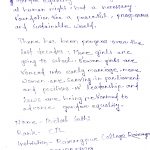 of gender equality
a human right, but a necessary
foundation for a peaceful, prosperous
and sustainable world.
There has been progress over the
last decades: More girls are
going to school, fewer girls are
forced into early marriage, more
women are serving in parliament
and positions of leadership and
laws are being reformed to
advance gender equality.
Name :-
Rank :-
Institution :-